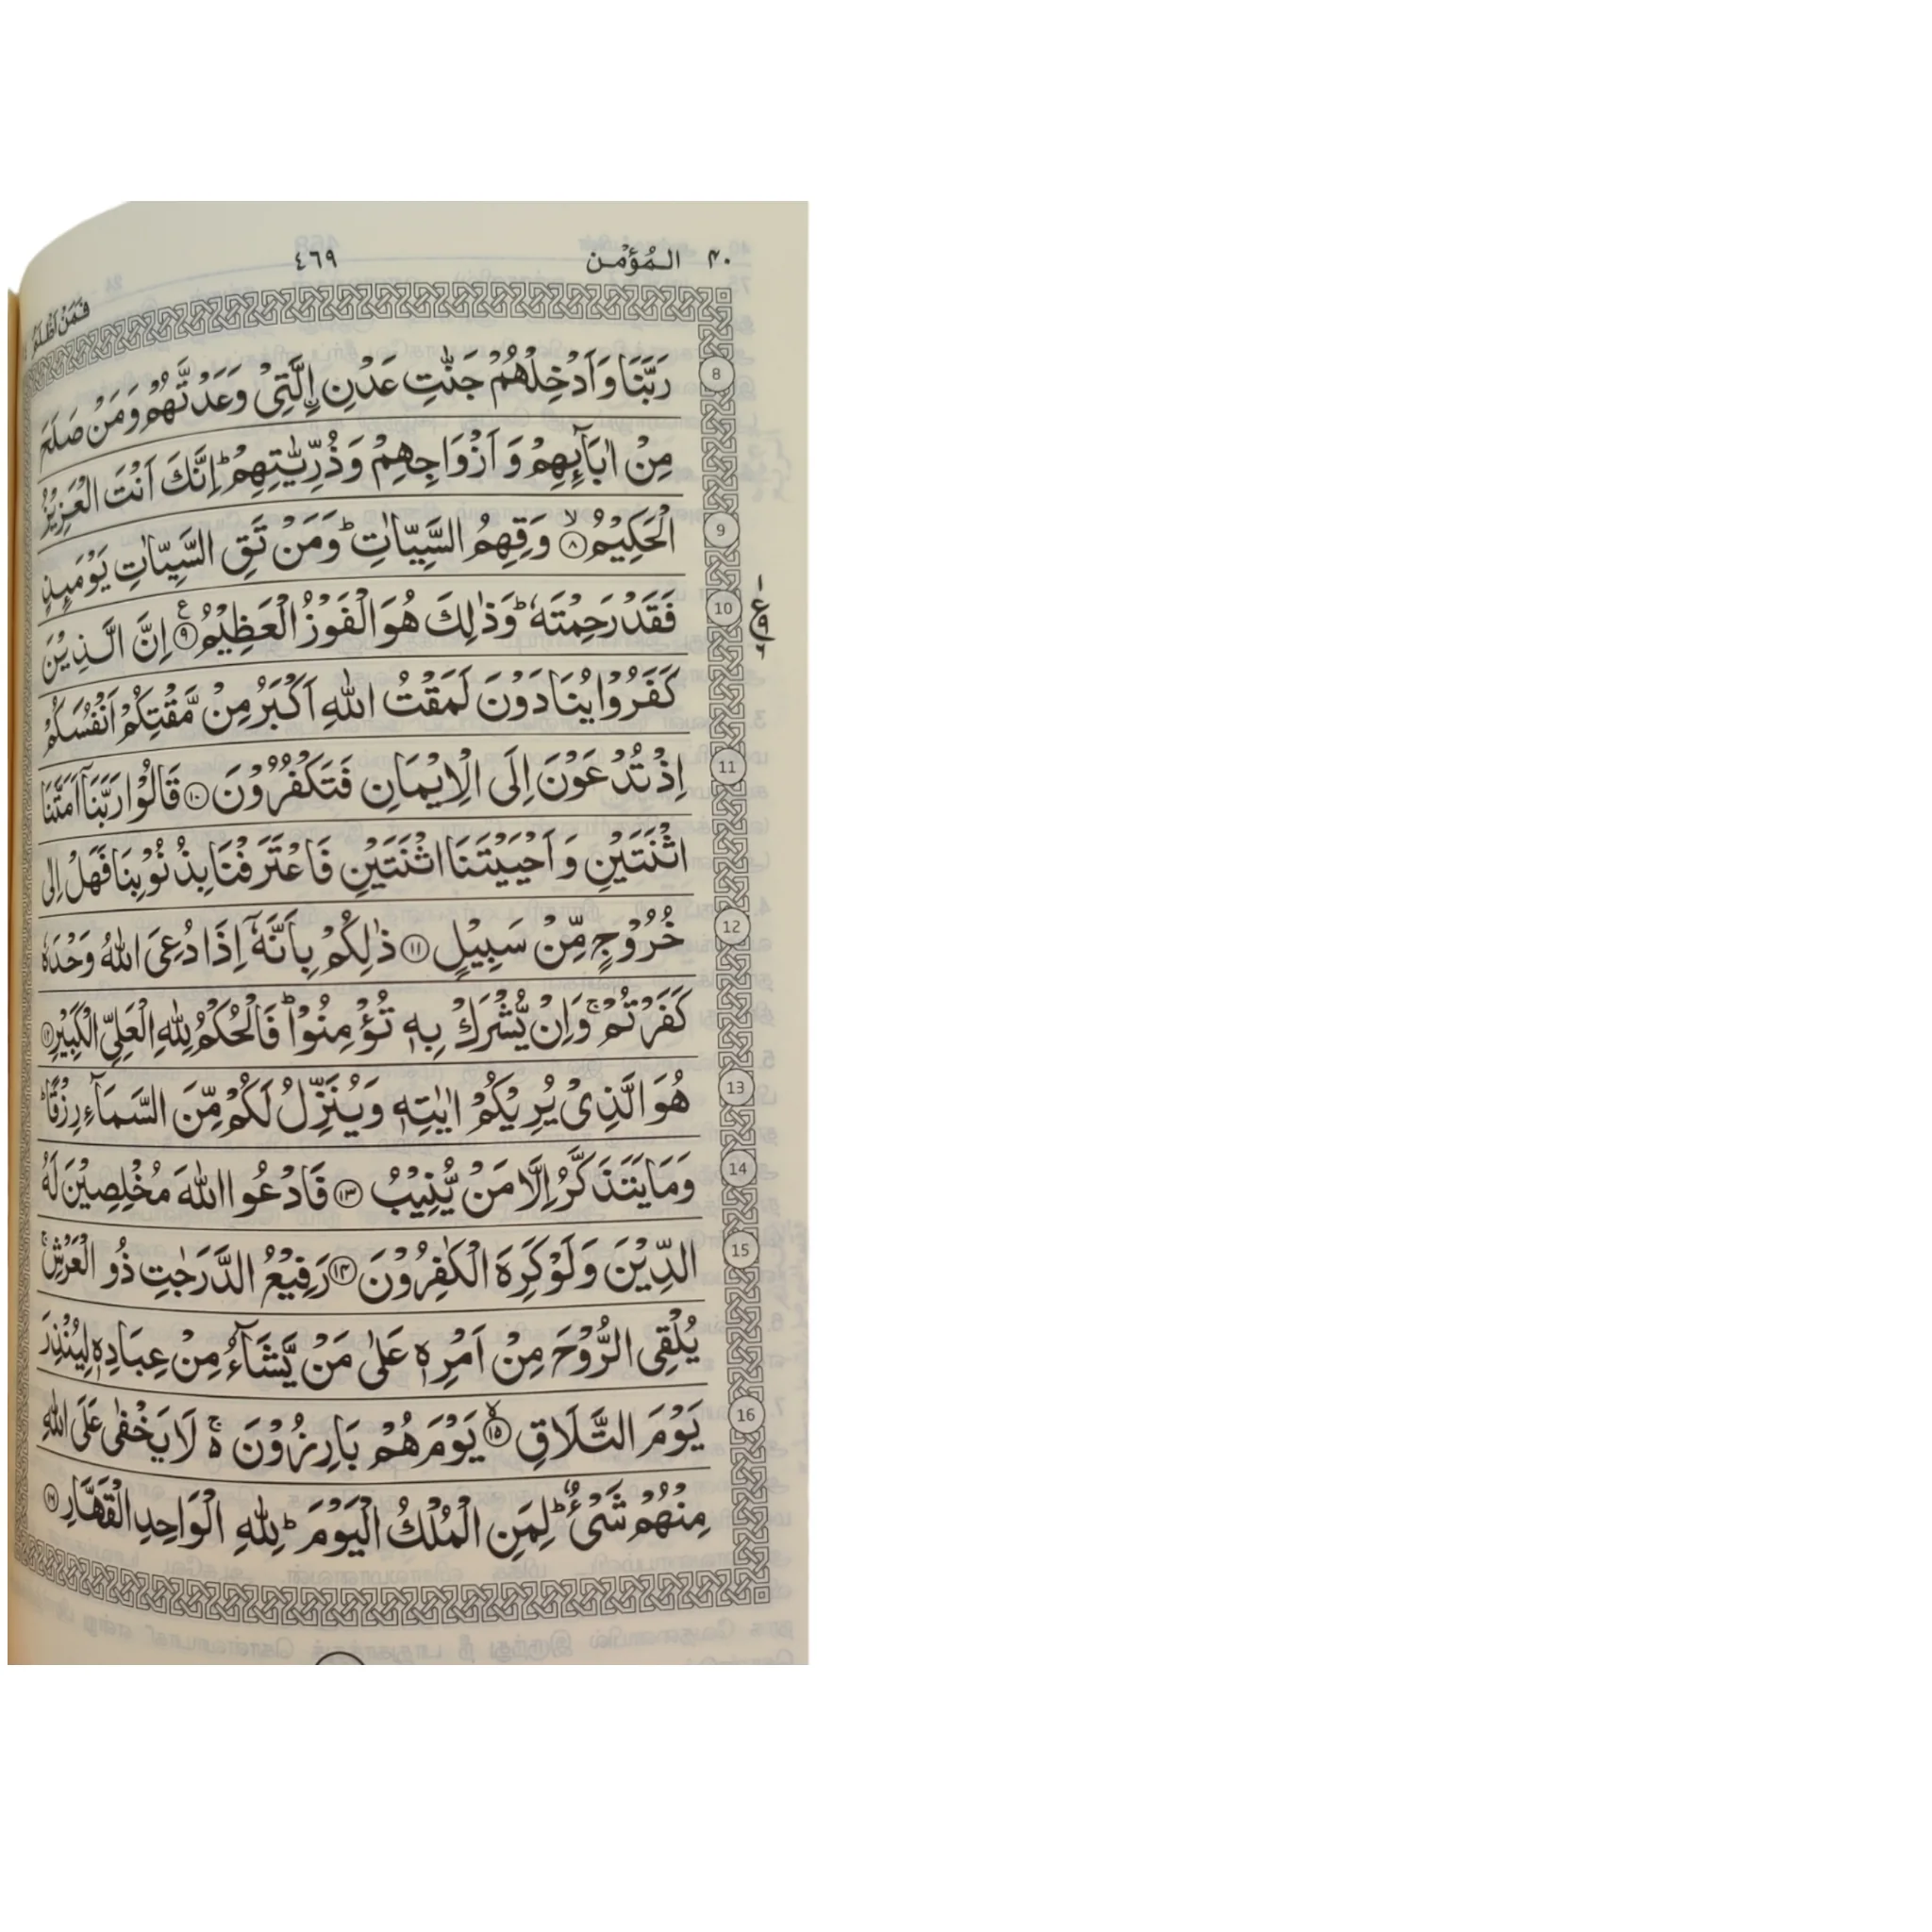 ٤٦٩
المُؤْمِن ۴۰
فَمَنْ اَظْلَمُ
رَبَّنَا وَاَدْخِلْهُمْ جَنّٰتِ عَدْنِ اِ۟لَّتِيْ وَعَدْتَّهُمْ وَمَنْ صَلَحَ
8
مِنْ اٰبَآئِهِمْ وَ اَزْوَاجِهِمْ وَذُرِّيّٰتِهِمْ ؕ اِنَّكَ اَنْتَ الْعَزِيْزُ
الْحَكِيْمُ ۙ۝۸ وَقِهِمُ السَّيِّاٰتِ ؕ وَمَنْ تَقِ السَّيِّاٰتِ يَوْمَىِٕذٍ
9
فَقَدْ رَحِمْتَهٗ ؕ وَذٰلِكَ هُوَ الْفَوْزُ الْعَظِيْمُ ۝۹ ع اِنَّ الَّذِيْنَ
10
ع ۹
كَفَرُوْا يُنَادَوْنَ لَمَقْتُ اللّٰهِ اَكْبَرُ مِنْ مَّقْتِكُمْ اَنْفُسَكُمْ
اِذْ تُدْعَوْنَ اِلَى الْاِيْمَانِ فَتَكْفُرُوْنَ ۝۱۰ قَالُوْا رَبَّنَاۤ اَمَتَّنَا
11
اثْنَتَيْنِ وَ اَحْيَيْتَنَا اثْنَتَيْنِ فَاعْتَرَفْنَا بِذُنُوْبِنَا فَهَلْ اِلٰى
خُرُوْجٍ مِّنْ سَبِيْلٍ ۝۱۱ ذٰلِكُمْ بِاَنَّهٗۤ اِذَا دُعِيَ اللّٰهُ وَحْدَهٗ
12
كَفَرْتُمْ ۚ وَاِنْ يُّشْرَكْ بِهٖ تُؤْمِنُوْا ؕ فَالْحُكْمُ لِلّٰهِ الْعَلِيِّ الْكَبِيْرِ ۝۱۲
هُوَ الَّذِىْ يُرِيْكُمْ اٰيٰتِهٖ وَيُنَزِّلُ لَكُمْ مِّنَ السَّمَآءِ رِزْقًا ؕ
13
وَمَا يَتَذَكَّرُ اِلَّا مَنْ يُّنِيْبُ ۝۱۳ فَادْعُوا اللّٰهَ مُخْلِصِيْنَ لَهُ
14
الدِّيْنَ وَلَوْ كَرِهَ الْكٰفِرُوْنَ ۝۱۴ رَفِيْعُ الدَّرَجٰتِ ذُو الْعَرْشِ ۚ
15
يُلْقِى الرُّوْحَ مِنْ اَمْرِهٖ عَلٰى مَنْ يَّشَآءُ مِنْ عِبَادِهٖ لِيُنْذِرَ
يَوْمَ التَّلَاقِ ۙ۝۱۵ يَوْمَ هُمْ بَارِزُوْنَ ۚ۬ لَا يَخْفٰى عَلَى اللّٰهِ
16
مِنْهُمْ شَىْءٌ ؕ لِمَنِ الْمُلْكُ الْيَوْمَ ؕ لِلّٰهِ الْوَاحِدِ الْقَهَّارِ ۝۱۶